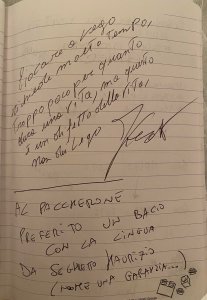 Giocare a Lego
richiede molto tempo,
troppo poco per quanto
dura una vita, ma questo
è un difetto della vita,
non dei Lego
AL PACCHERONE
PREFERITO UN BACIO
CON LA LINGUA
DA SEGRETO MAURIZIO
(NOME UNA GARANZIA...)